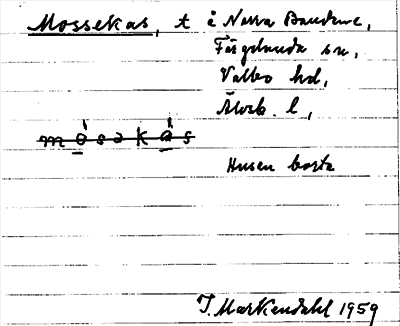 Mossekas, t å Norra Bandene,
Färgelanda sn,
Valbo hd,
Älvsb. l,
mosəkas
Husen borta
J. Markendahl 1959